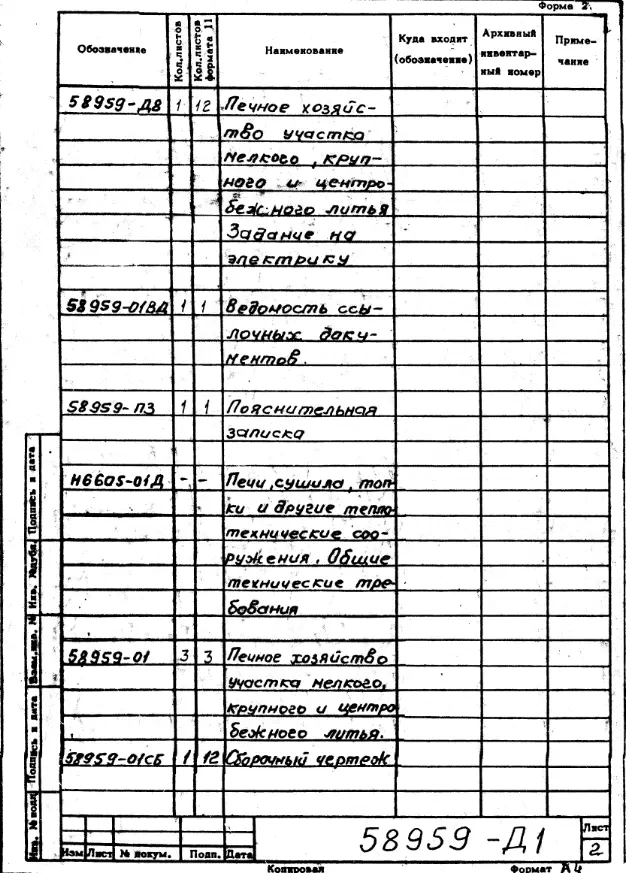 Форма 2.
Обозначение Кол.листов Кол.листов формата 11 Наименование Куда входит (обозначение) Архивный инвентар-ный номер Приме-чание
58959-Д8 1 12 Печное хозяйс-
тво участка
мелкого, круп-
ного и центро-
бежного литья
Задание на
электрику
58959-01ВД 1 1 Ведомость ссы-
лочных доку-
ментов.
58959-ПЗ 1 1 Пояснительная
записка
Н6605-01Д - - Печи, сушила, топ-
ки и другие тепло-
технические соо-
ружения. Общие
технические тре-
бования
58959-01 3 3 Печное хозяйство
участка мелкого,
крупного и центро
бежного литья.
58959-01СБ 1 12 Сборочный чертеж
Подпись и дата
Инв. №дубл.
Взам.инв. №
Подпись и дата
Инв. № подл
58959-Д1
Лист
2
Изм Лист № докум. Подп. Дата
Копировал Формат А4